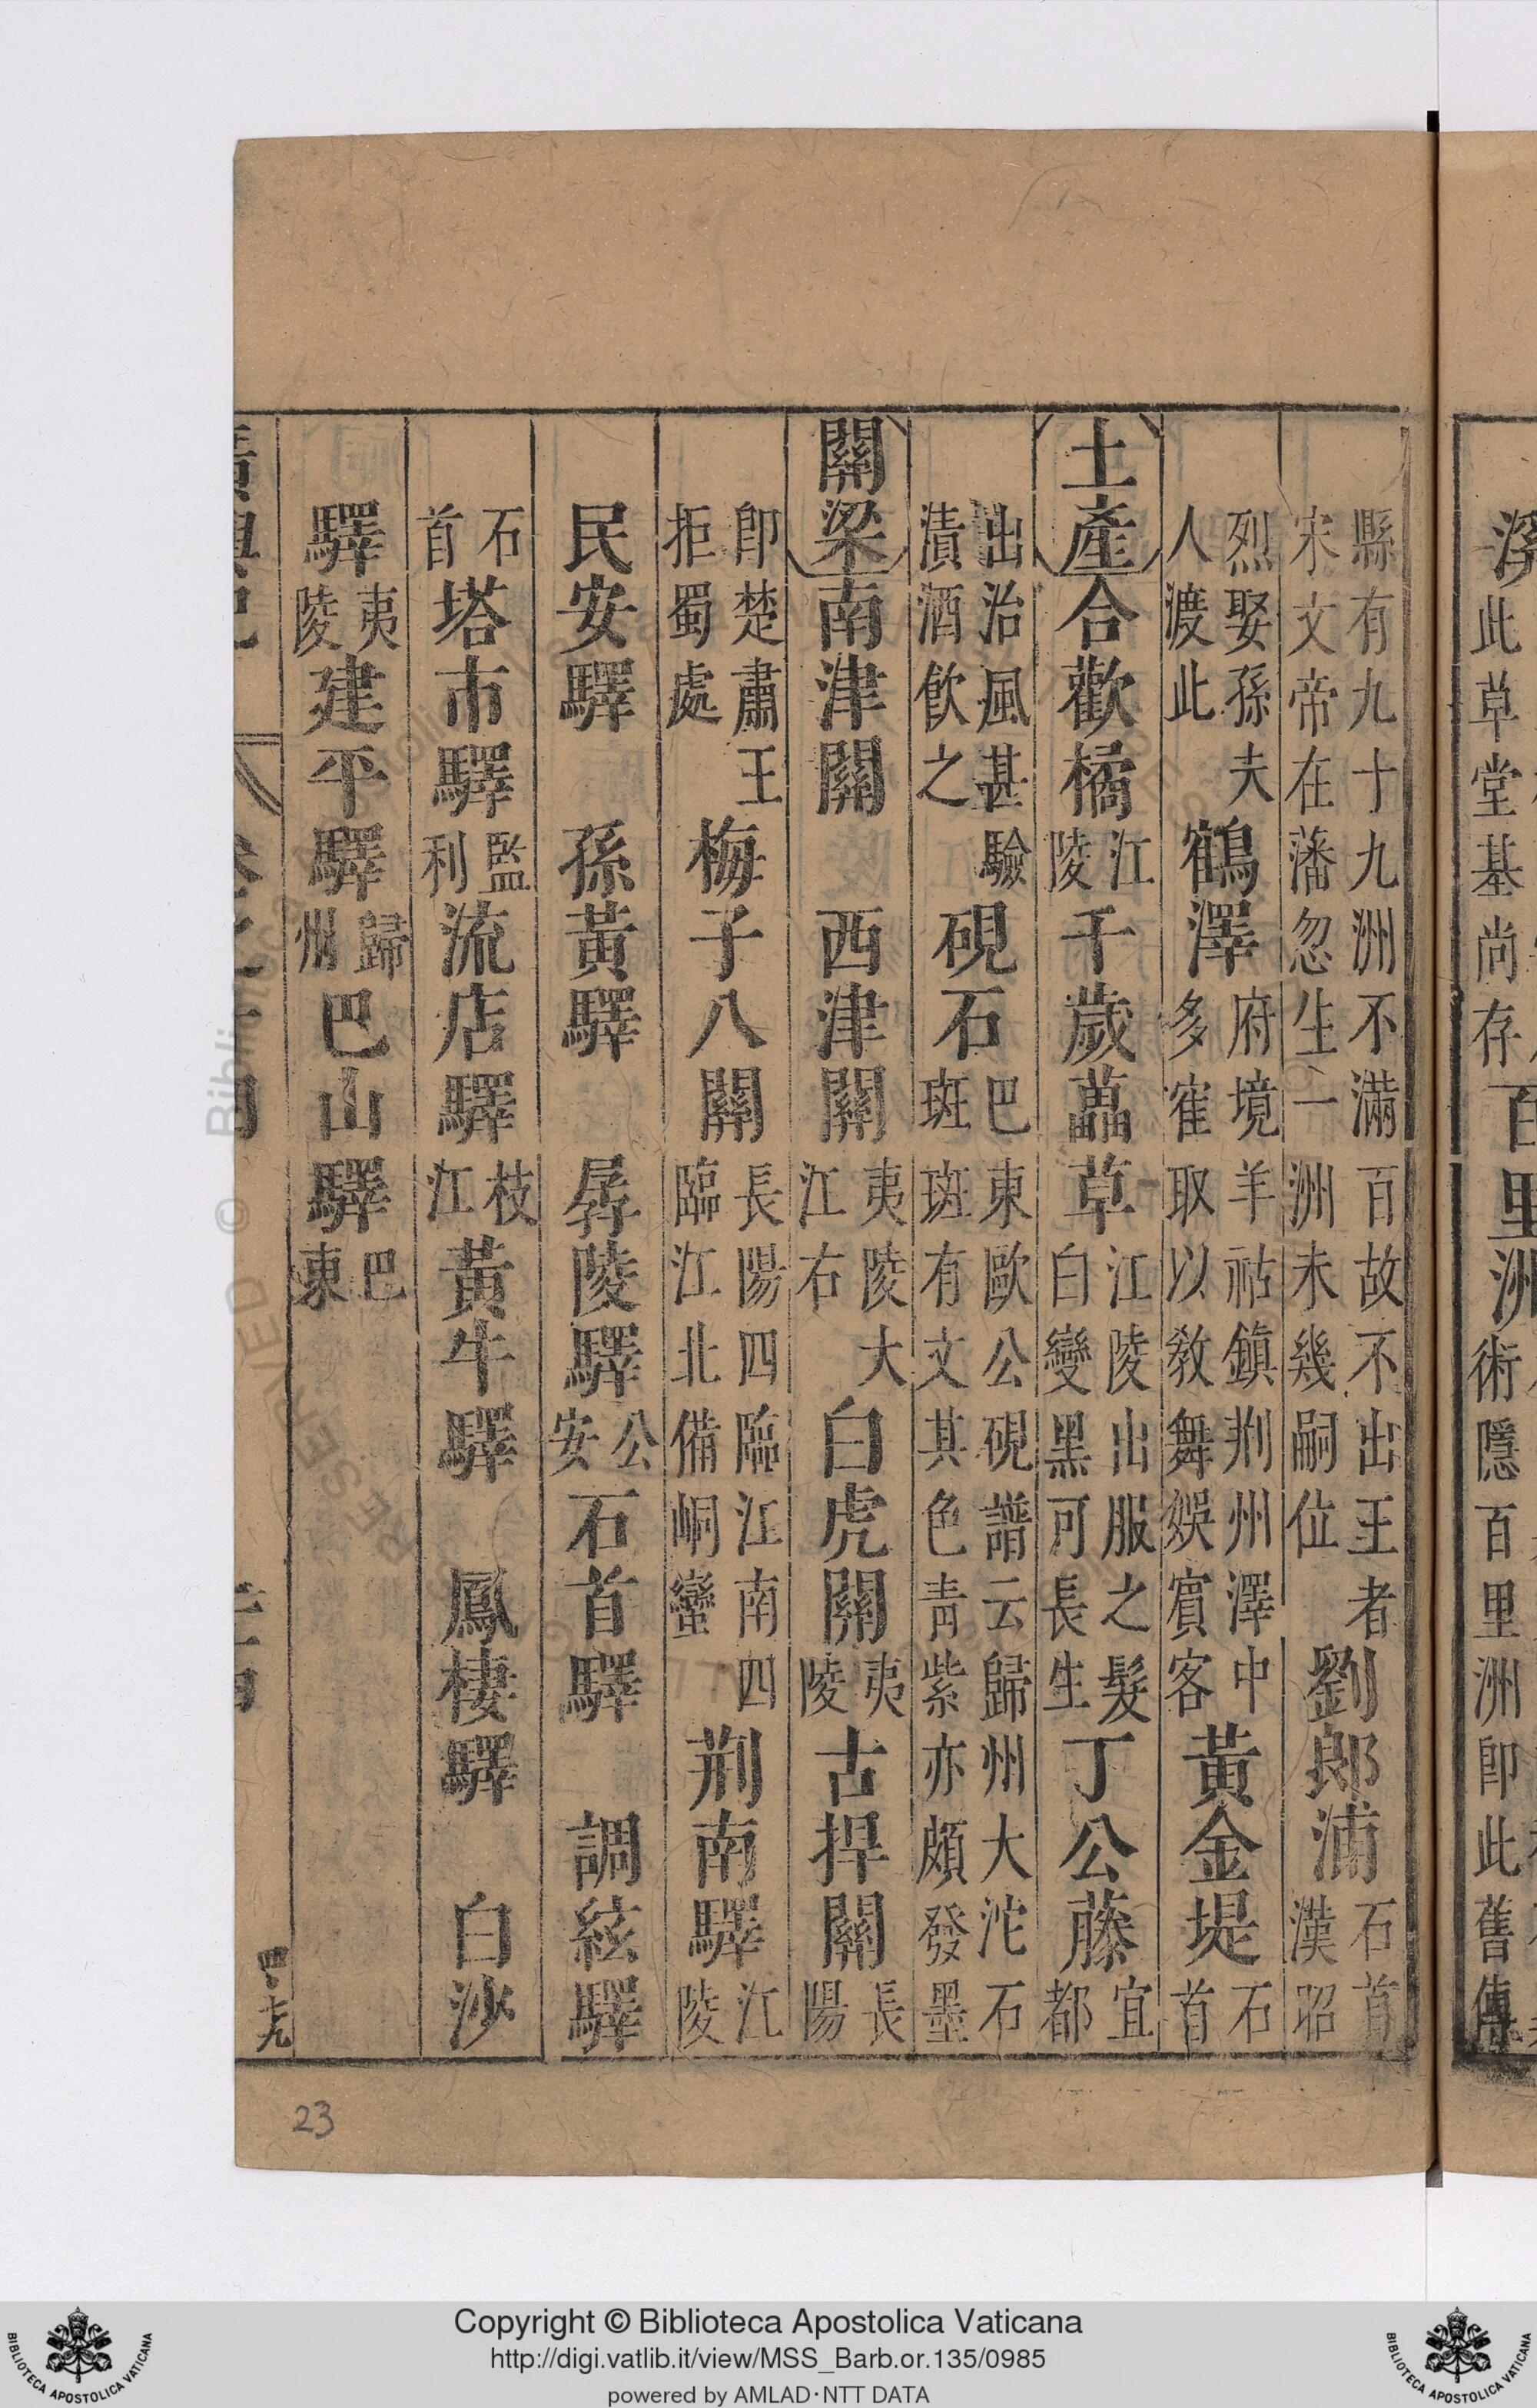 溪此草堂基尚存百里洲術隱百里洲即此舊傳
縣有九十九洲不滿百故不出王者宋文帝在藩忽生一洲未幾嗣位劉郎浦石首漢昭
烈娶孫夫人渡此鶴澤府境羊祜鎮荆州澤中多寉取以敎舞娛賓客黃金堤石首
土產合歡橘江陵千歲藟草江陵出服之髮白變黑可長生丁公藤宜都
出治風甚驗漬酒飲之硯石巴東歐公硯譜云歸州大沱石斑斑有文其色青紫亦頗發墨
關梁南津關西津關夷陵大江右白虎關夷陵古捍關長陽
即楚肅王拒蜀處梅子八關長陽四臨江南四臨江北備峒蠻荆南驛江陵
民安驛孫黃驛孱陵驛公安石首驛調絃驛
石首塔市驛監利流店驛枝江黃牛驛鳳棲驛白沙
驛夷陵建平驛歸州巴山驛巴東
23
Copyright © Biblioteca Apostolica Vaticana
http://digi.vatlib.it/view/MSS_Barb.or.135/0985
powered by AMLAD·NTT DATA